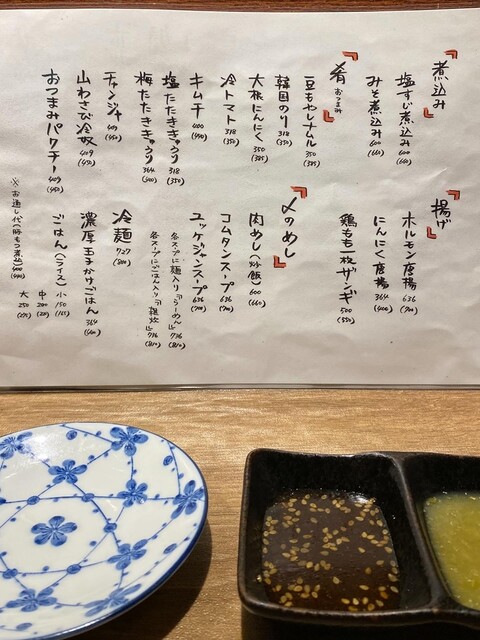 煮込み
塩すじ煮込み 600 (660)
みそ煮込み 600 (660)
肴 おつまみ
豆もやしナムル 350 (385)
韓国のり 318 (350)
大根にんにく 350 (385)
冷トマト 318 (350)
キムチ 400 (440)
塩たたききゅうり 318 (350)
梅たたききゅうり 364 (400)
チャンジャ 409 (450)
山わさび冷奴 409 (450)
おつまみパクチー 409 (450)
※お通し代(豚もつ煮込) 400 (440)
揚げ
ホルモン唐揚 636 (700)
にんにく唐揚 364 (400)
鶏もも一枚ザンギ 500 (550)
〆のめし
肉めし(炒飯) 600 (660)
コムタンスープ 636 (700)
ユッケジャンスープ 636 (700)
各スープに麺入り『らーめん』 736 (810)
各スープにごはん入り『雑炊』 736 (810)
冷麺 727 (800)
濃厚玉子かけごはん 364 (400)
ごはん(ライス) 小 150 (165)
中 200 (220)
大 250 (275)